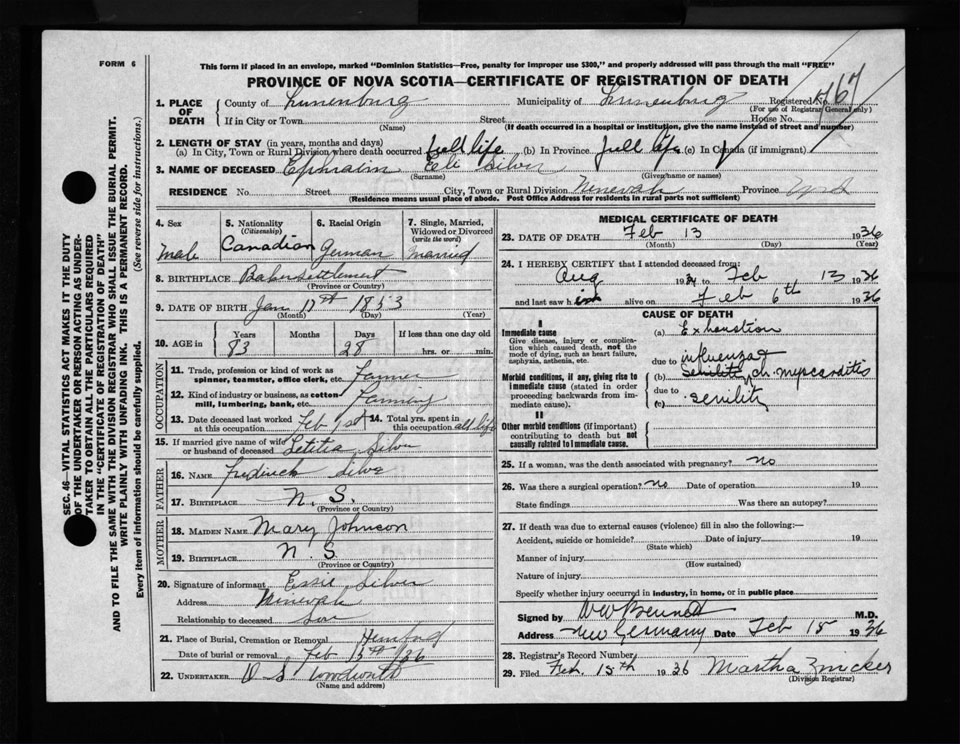 FORM 6
This form if placed in an envelope, marked "Dominion Statistics—Free, penalty for improper use $300," and properly addressed will pass through the mail "FREE"
PROVINCE OF NOVA SCOTIA—CERTIFICATE OF REGISTRATION OF DEATH
SEC. 46—VITAL STATISTICS ACT MAKES IT THE DUTY
OF THE UNDERTAKER OR PERSON ACTING AS UNDER-
TAKER TO OBTAIN ALL THE PARTICULARS REQUIRED
IN THE "CERTIFICATE OF REGISTRATION OF DEATH"
AND TO FILE THE SAME WITH THE DIVISION REGISTRAR WHO SHALL ISSUE THE BURIAL PERMIT.
WRITE PLAINLY WITH UNFADING INK. THIS IS A PERMANENT RECORD.
Every item of information should be carefully supplied. (See reverse side for instructions.)
1. PLACE OF DEATH
County of Lunenburg Municipality of Lunenburg Registered No. 767
(For use of Registrar General only)
If in City or Town Street House No.
(Name) (If death occurred in a hospital or institution, give the name instead of street and number)
2. LENGTH OF STAY (in years, months and days)
(a) In City, Town or Rural Division where death occurred full life (b) In Province full life (c) In Canada (if immigrant)
3. NAME OF DECEASED Ephraim Eli Silver
(Surname) (Given name or names)
RESIDENCE No. Street City, Town or Rural Division Ninevah Province
(Residence means usual place of abode. Post Office Address for residents in rural parts not sufficient)
4. Sex
Male
5. Nationality
(Citizenship)
Canadian
6. Racial Origin
German
7. Single, Married,
Widowed or Divorced
(write the word)
Married
8. BIRTHPLACE Baker settlement
(Province or Country)
9. DATE OF BIRTH Jan 17th 1853
(Month) (Day) (Year)
10. AGE in
Years Months Days If less than one day old
83 28 hrs. or min.
OCCUPATION
11. Trade, profession or kind of work as
spinner, teamster, office clerk, etc. Farmer
12. Kind of industry or business, as cotton
mill, lumbering, bank, etc. Farming
13. Date deceased last worked
at this occupation Feb 1st
14. Total yrs. spent in
this occupation all life
15. If married give name of wife
or husband of deceased Letitia Silver
FATHER
16. NAME Fredrick Silver
17. BIRTHPLACE N. S.
(Province or Country)
MOTHER
18. MAIDEN NAME Mary Johnson
19. BIRTHPLACE N. S.
(Province or Country)
20. Signature of informant Essie Silver
Address Ninevah
Relationship to deceased Son
21. Place of Burial, Cremation or Removal Hemford
Date of burial or removal Feb 15th/36
22. UNDERTAKER D S
(Name and address)
MEDICAL CERTIFICATE OF DEATH
23. DATE OF DEATH Feb 13 1936
(Month) (Day) (Year)
24. I HEREBY CERTIFY that I attended deceased from:
Aug 19 to Feb 13 1936
and last saw him alive on Feb 6th 1936
CAUSE OF DEATH
I
Immediate cause
Give disease, injury or complica-
tion which caused death, not the
mode of dying, such as heart failure,
asphyxia, asthenia, etc.
(a) Exhaustion
due to influenza
Morbid conditions, if any, giving rise to
immediate cause (stated in order
proceeding backwards from im-
mediate cause).
(b) Senility, ch. myocarditis
due to
(c) Senility
II
Other morbid conditions (if important)
contributing to death but not
causally related to immediate cause.
25. If a woman, was the death associated with pregnancy? no
26. Was there a surgical operation? no Date of operation 19
State findings Was there an autopsy?
27. If death was due to external causes (violence) fill in also the following:—
Accident, suicide or homicide? Date of injury 19
(State which)
Manner of injury
(How sustained)
Nature of injury
Specify whether injury occurred in industry, in home, or in public place
Signed by W W Bennett M.D.
Address New Germany Date Feb 15 1936
28. Registrar's Record Number
29. Filed Feb. 15th 1936 Martha Zwicker
(Division Registrar)